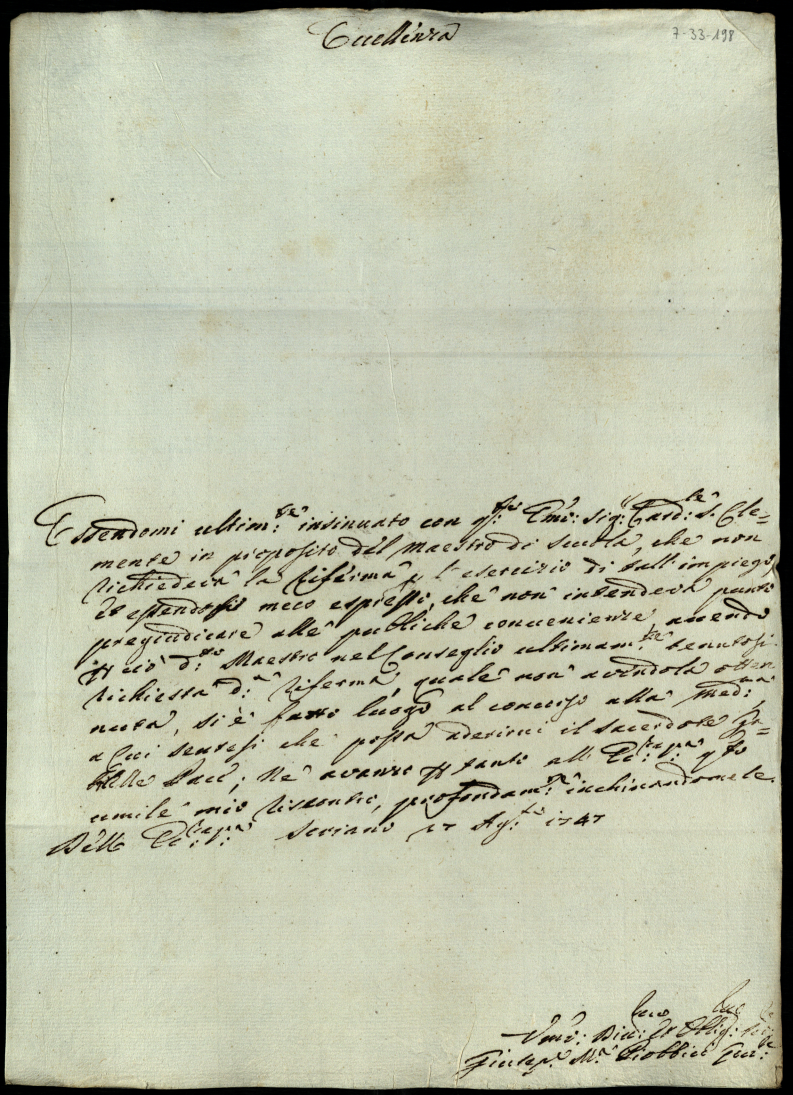 Eccellenza
7-33-198
Essendomi ultim:te insinuato con q:sto Emo: Sig: Card:le S. Cle=
mente in proposito del Maestro di scuola, che non
richiedeva la riferma p l'esercizio di tall'impiego,
et essendosi meco espresso, che non intendeva punto
pregiudicare alle publiche convenienze, avendo
p ciò d:to Maestro nel Conseglio ultimam:te tenutosi
richiesta d:a riferma, quale non avendola otten
nuta, si è fatto luogo al concorso alla med:ma
a cui sentesi che possa aderirvi il sacerdote
Pace; Ne avanzo p tanto all' Ec:za V:a q:sto
umile mio riscontro, profondam:te inchinandomele.
Dell' Ec:za V:a Soriano 17 Ag:to 1747
Umo: Dino: et Oblig:
Giusep:e M:a Piobbici